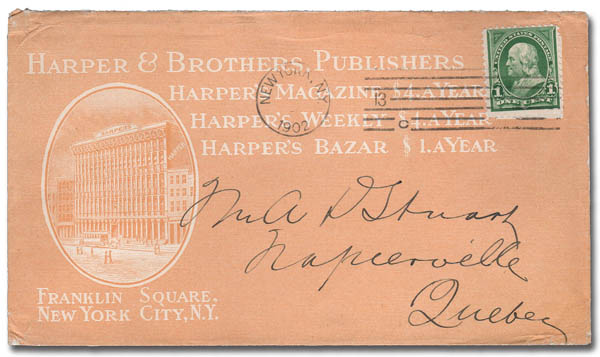 HARPER & BROTHERS, PUBLISHERS
HARPER'S MAGAZINE $4. A YEAR
HARPER'S WEEKLY $4. A YEAR
HARPER'S BAZAR $1. A YEAR
UNITED STATES POSTAGE
1 1
ONE CENT
NEW YORK, N.Y.
1902
13
HARPER
FRANKLIN SQUARE,
NEW YORK CITY, N.Y.
A D Stuart
Napierville
Quebec